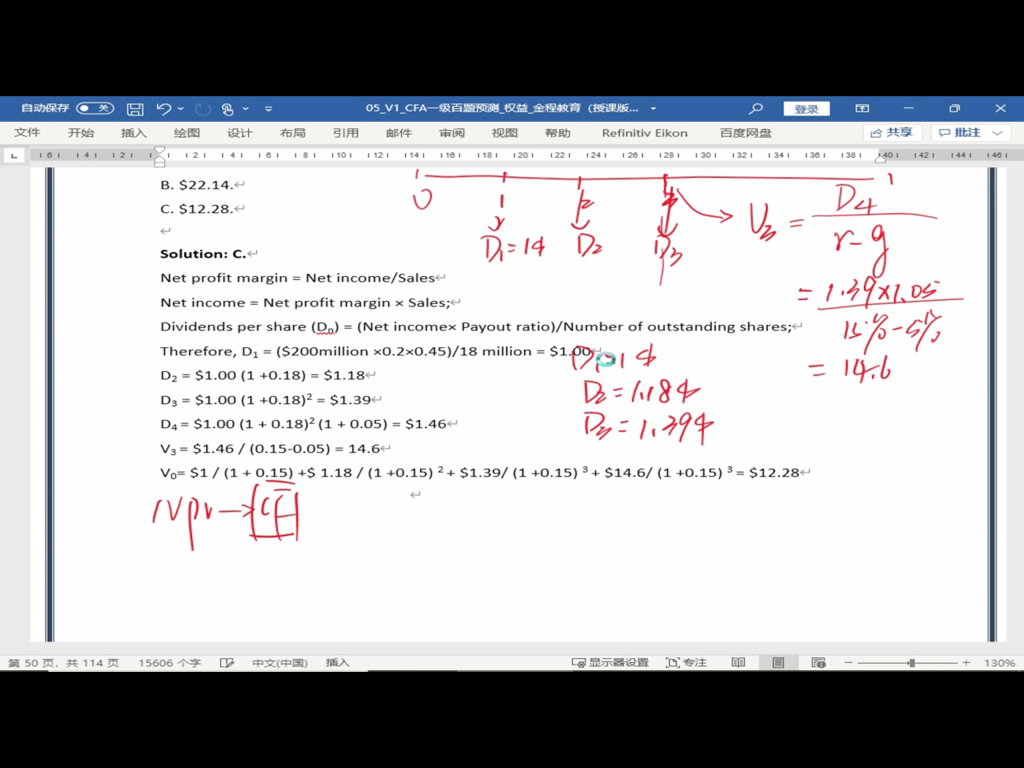 自动保存 关 05_V1_CFA一级百题预测_权益_金程教育（授课版... 登录
文件 开始 插入 绘图 设计 布局 引用 邮件 审阅 视图 帮助 Refinitiv Eikon 百度网盘 共享 批注
6 4 2 2 4 6 8 10 12 14 16 18 20 22 24 26 28 30 32 34 36 38 40 42 44 46
B. $22.14.
C. $12.28.
0 1 2
D₁=1$ D2 D3
V3 = D4 / r-g
= 1.39×1.05 / 15%-5%
= 14.6
Solution: C.
Net profit margin = Net income/Sales
Net income = Net profit margin × Sales;
Dividends per share (Dn) = (Net income× Payout ratio)/Number of outstanding shares;
Therefore, D₁ = ($200million ×0.2×0.45)/18 million = $1.00
D₂ = $1.00 (1 +0.18) = $1.18
D₃ = $1.00 (1 +0.18)² = $1.39
D₄ = $1.00 (1 + 0.18)² (1 + 0.05) = $1.46
V₃ = $1.46 / (0.15-0.05) = 14.6
V₀= $1 / (1 + 0.15) +$ 1.18 / (1 +0.15) ² + $1.39/ (1 +0.15) ³ + $14.6/ (1 +0.15) ³ = $12.28
1$
D2=1.18$
D3=1.39$
NPV→CF
第 50 页，共 114 页 15606 个字 中文(中国) 插入 显示器设置 专注 130%